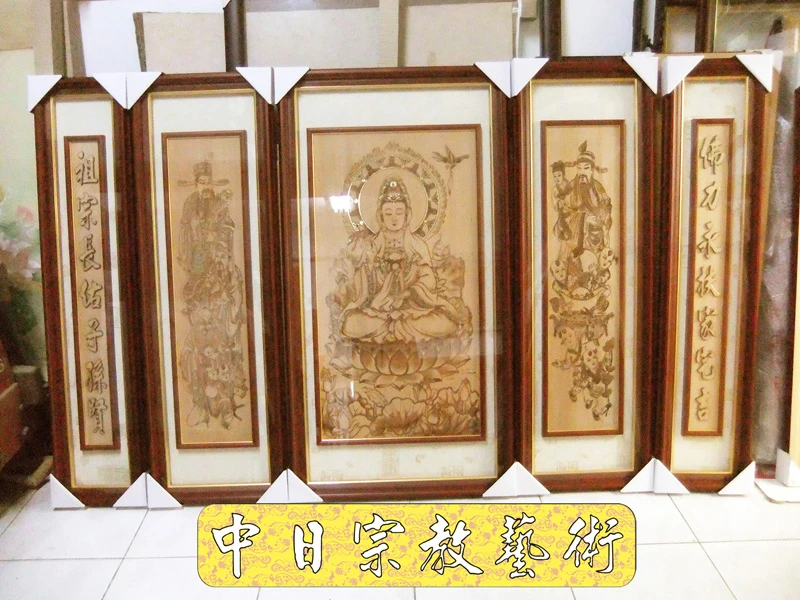 佛力永扶家宅吉
祖宗長佑子孫賢
中日宗教藝術